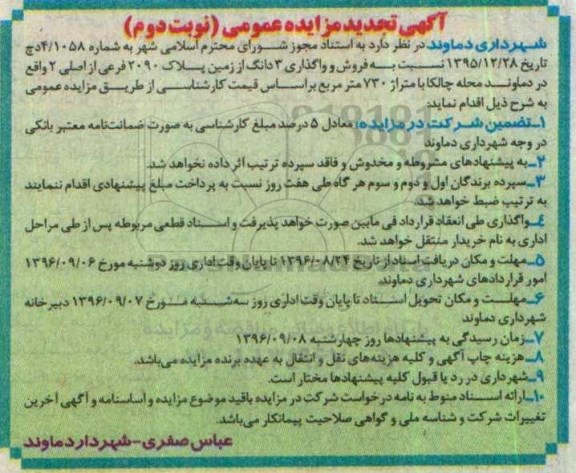 آگهی تجدید مزایده عمومی (نوبت دوم)
شهرداری دماوند در نظر دارد به استناد مجوز شورای محترم اسلامی شهر به شماره ۴/۱۰۵۸دچ
تاریخ ۱۳۹۵/۱۲/۲۸ نسبت به فروش و واگذاری ۳ دانگ از زمین پلاک ۲۰۹۰ فرعی از اصلی ۲ واقع
در دماوند محله چالکا با متراژ ۷۳۰ متر مربع براساس قیمت کارشناسی از طریق مزایده عمومی
به شرح ذیل اقدام نماید:
۱ـ تضمین شرکت در مزایده: معادل ۵ درصد مبلغ کارشناسی به صورت ضمانت‌نامه معتبر بانکی
در وجه شهرداری دماوند
۲ـ به پیشنهادهای مشروطه و مخدوش و فاقد سپرده ترتیب اثر داده نخواهد شد.
۳ـ سپرده برندگان اول و دوم و سوم هر گاه طی هفت روز نسبت به پرداخت مبلغ پیشنهادی اقدام ننمایند
به ترتیب ضبط خواهد شد.
۴ـ واگذاری طی انعقاد قرارداد فی مابین صورت خواهد پذیرفت و اسناد قطعی مربوطه پس از طی مراحل
اداری به نام خریدار منتقل خواهد شد.
۵ـ مهلت و مکان دریافت اسناد از تاریخ ۱۳۹۶/۰۸/۲۴ تا پایان وقت اداری روز دوشنبه مورخ ۱۳۹۶/۰۹/۰۶
امور قراردادهای شهرداری دماوند
۶ـ مهلت و مکان تحویل اسناد تا پایان وقت اداری روز سه‌شنبه مورخ ۱۳۹۶/۰۹/۰۷ دبیرخانه
شهرداری دماوند
۷ـ زمان رسیدگی به پیشنهادها روز چهارشنبه ۱۳۹۶/۰۹/۰۸
۸ـ هزینه چاپ آگهی و کلیه هزینه‌های نقل و انتقال به عهده برنده مزایده می‌باشد.
۹ـ شهرداری در رد یا قبول کلیه پیشنهادها مختار است.
۱۰ـ ارائه اسناد منوط به نامه درخواست شرکت در مزایده باقید موضوع مزایده و اساسنامه و آگهی آخرین
تغییرات شرکت و شناسه ملی و گواهی صلاحیت پیمانکار می‌باشد.
عباس صفری - شهردار دماوند